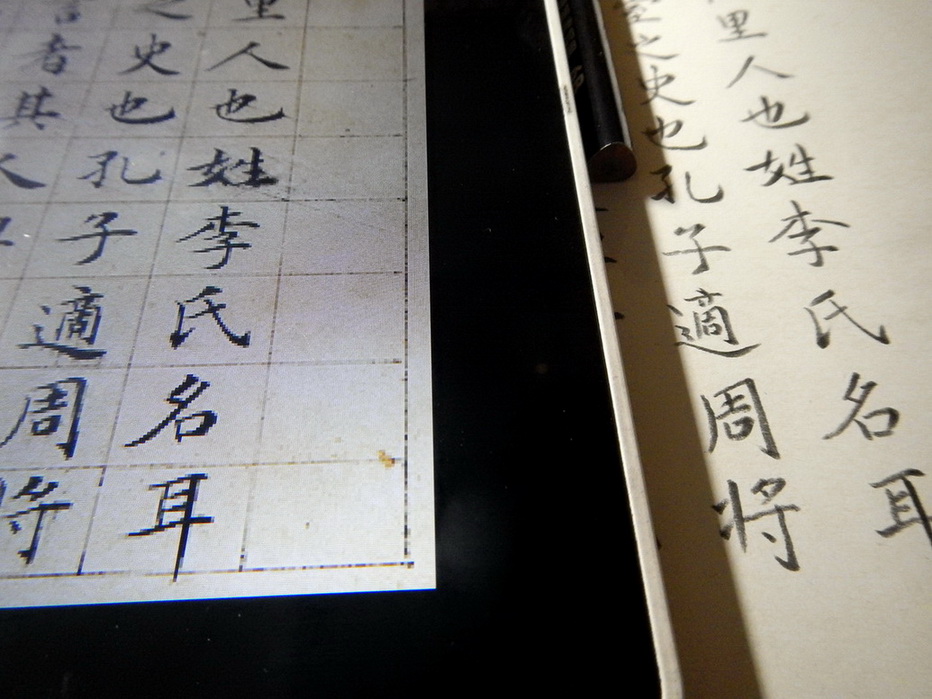 里人也姓李氏名耳
之史也孔子適周將
里人也姓李氏名耳
之史也孔子適周將
言者其人